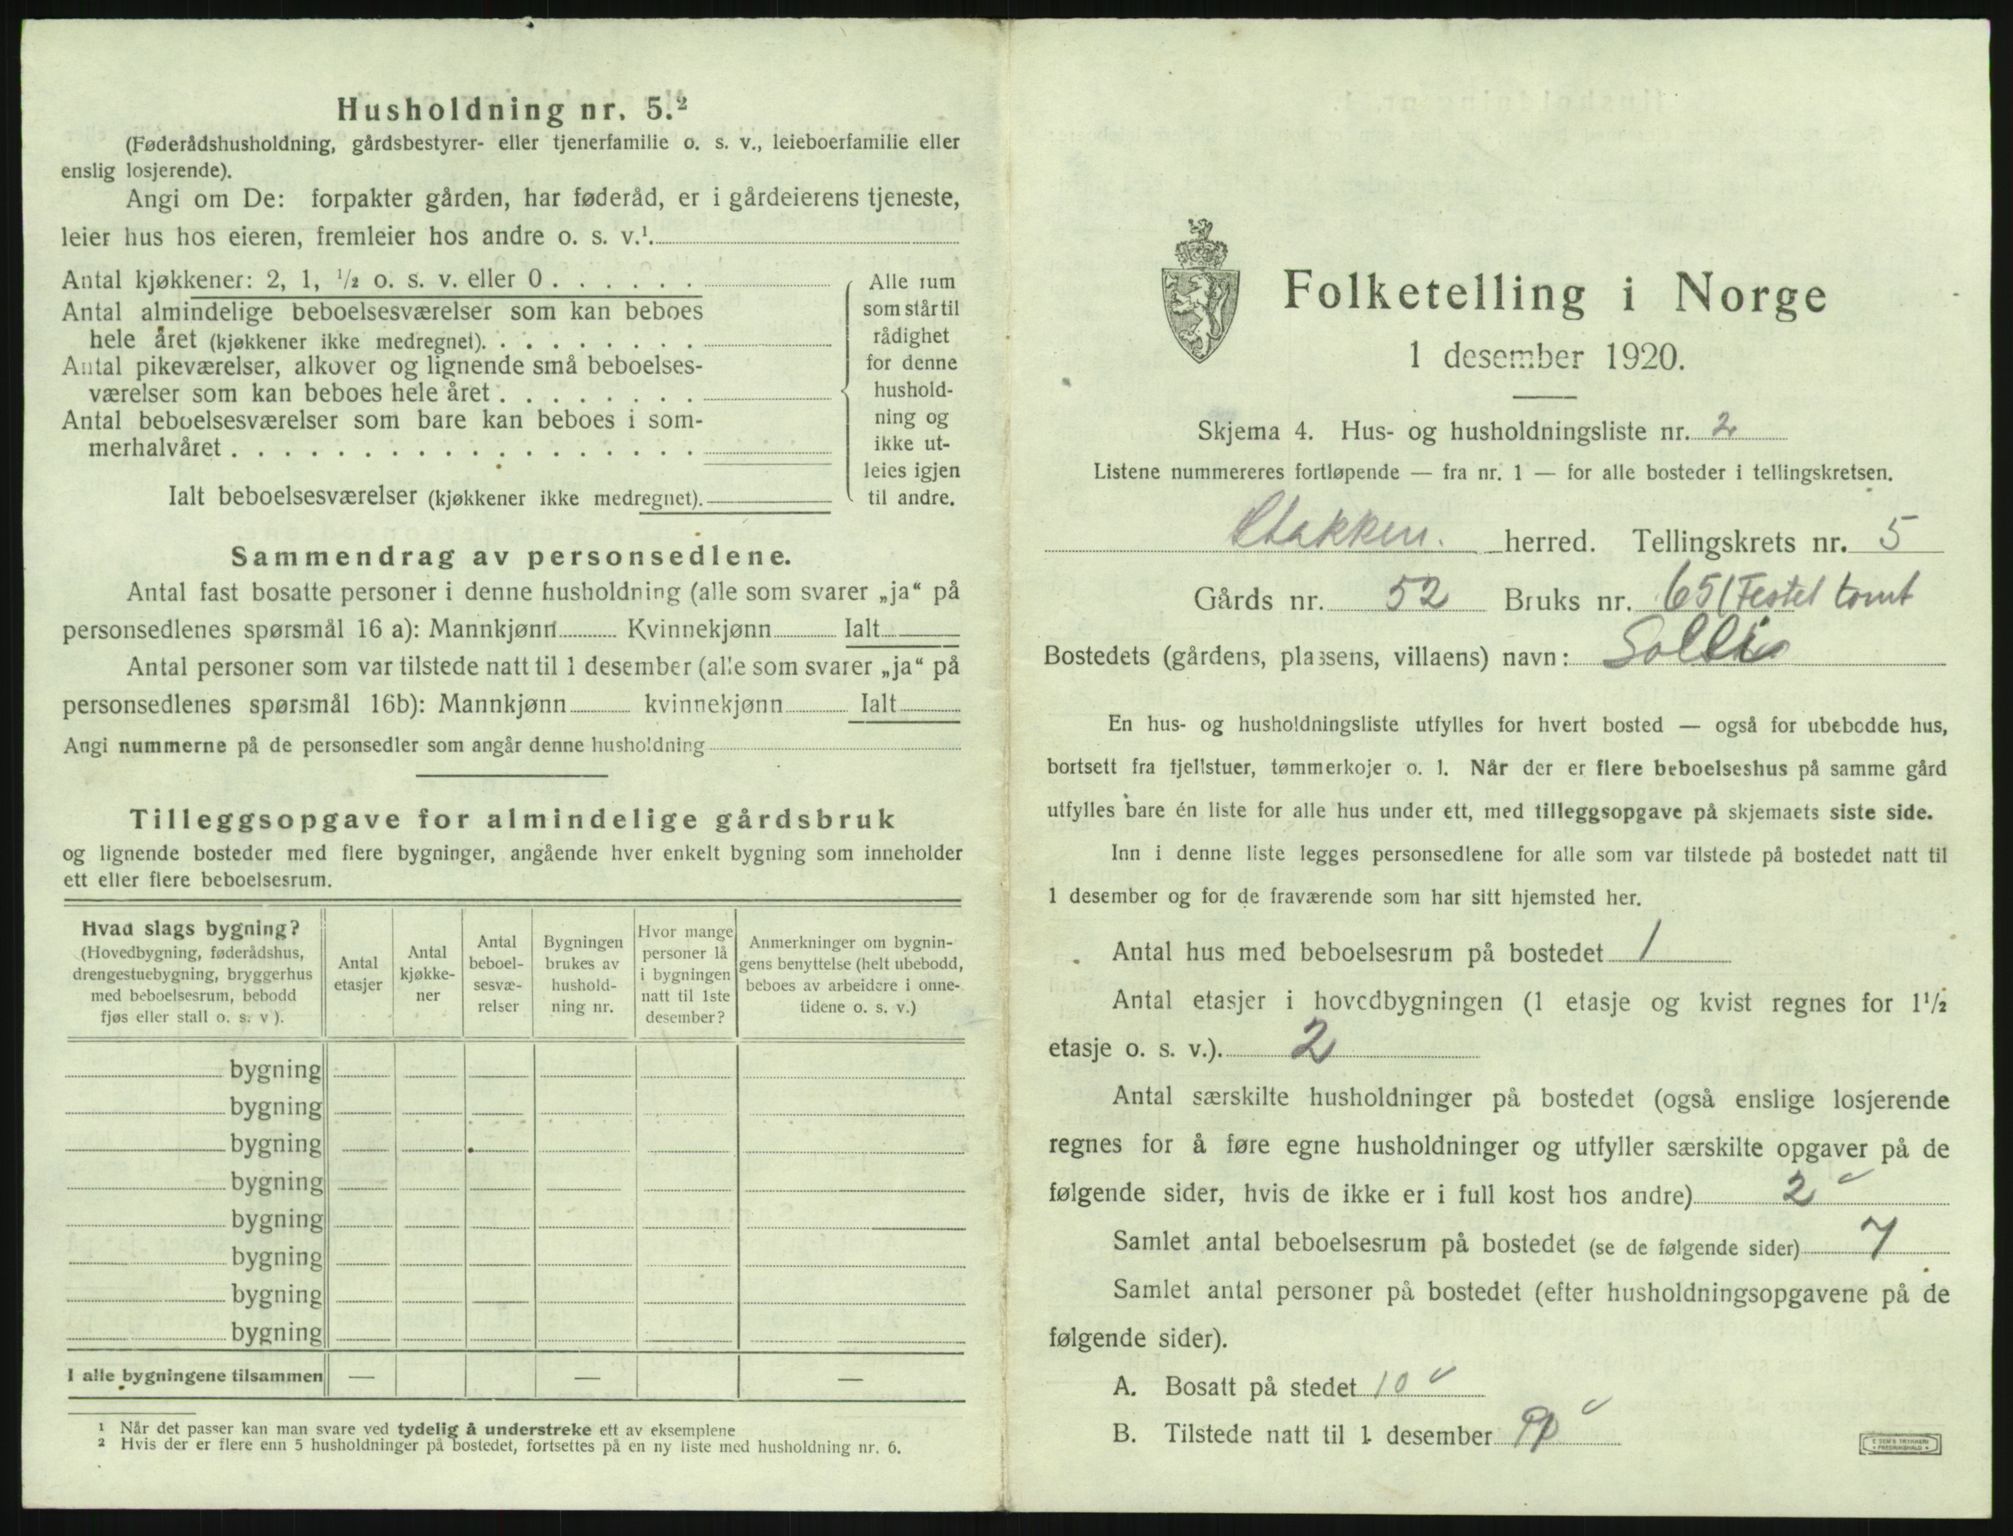 Husholdning nr. 5.²
(Føderådshusholdning, gårdsbestyrer- eller tjenerfamilie o. s. v., leieboerfamilie eller
enslig losjerende).
Angi om De: forpakter gården, har føderåd, er i gårdeierens tjeneste,
leier hus hos eieren, fremleier hos andre o. s. v.¹.
Antal kjøkkener: 2, 1, ½ o. s. v. eller 0 . . . . . .
Antal almindelige beboelsesværelser som kan beboes
hele året (kjøkkener ikke medregnet). . . . . . . . .
Antal pikeværelser, alkover og lignende små beboelses-
værelser som kan beboes hele året . . . . . . . .
Antal beboelsesværelser som bare kan beboes i som-
merhalvåret . . . . . . . . . . . . . . . . . .
Ialt beboelsesværelser (kjøkkener ikke medregnet).
Alle rum
som står til
rådighet
for denne
hushold-
ning og
ikke ut-
leies igjen
til andre.
Sammendrag av personsedlene.
Antal fast bosatte personer i denne husholdning (alle som svarer „ja“ på
personsedlenes spørsmål 16 a): Mannkjønn Kvinnekjønn Ialt
Antal personer som var tilstede natt til 1 desember (alle som svarer „ja“ på
personsedlenes spørsmål 16b): Mannkjønn kvinnekjønn Ialt
Angi nummerne på de personsedler som angår denne husholdning
Tilleggsopgave for almindelige gårdsbruk
og lignende bosteder med flere bygninger, angående hver enkelt bygning som inneholder
ett eller flere beboelsesrum.
Hvad slags bygning?
(Hovedbygning, føderådshus,
drengestuebygning, bryggerhus
med beboelsesrum, bebodd
fjøs eller stall o. s. v).
Antal
etasjer
Antal
kjøkke-
ner
Antal
beboel-
sesvæ-
relser
Bygningen
brukes av
hushold-
ning nr.
Hvor mange
personer lå
i bygningen
natt til 1ste
desember?
Anmerkninger om bygnin-
gens benyttelse (helt ubebodd,
beboes av arbeidere i onne-
tidene o. s. v.)
bygning
bygning
bygning
bygning
bygning
bygning
bygning
bygning
I alle bygningene tilsammen — — —
¹ Når det passer kan man svare ved tydelig å understreke ett av eksemplene
² Hvis der er flere enn 5 husholdninger på bostedet, fortsettes på en ny liste med husholdning nr. 6.
Folketelling i Norge
1 desember 1920.
Skjema 4. Hus- og husholdningsliste nr. 2
Listene nummereres fortløpende — fra nr. 1 — for alle bosteder i tellingskretsen.
Stakken. herred. Tellingskrets nr. 5
Gårds nr. 52 Bruks nr. 65 (Festet tomt
Bostedets (gårdens, plassens, villaens) navn: Solli
En hus- og husholdningsliste utfylles for hvert bosted — også for ubebodde hus,
bortsett fra fjellstuer, tømmerkojer o. l. Når der er flere beboelseshus på samme gård
utfylles bare én liste for alle hus under ett, med tilleggsopgave på skjemaets siste side.
Inn i denne liste legges personsedlene for alle som var tilstede på bostedet natt til
1 desember og for de fraværende som har sitt hjemsted her.
Antal hus med beboelsesrum på bostedet 1
Antal etasjer i hovedbygningen (1 etasje og kvist regnes for 1½
etasje o. s. v.). 2
Antal særskilte husholdninger på bostedet (også enslige losjerende
regnes for å føre egne husholdninger og utfyller særskilte opgaver på de
følgende sider, hvis de ikke er i full kost hos andre) 2
Samlet antal beboelsesrum på bostedet (se de følgende sider) 7
Samlet antal personer på bostedet (efter husholdningsopgavene på de
følgende sider).
A. Bosatt på stedet 10
B. Tilstede natt til 1 desember